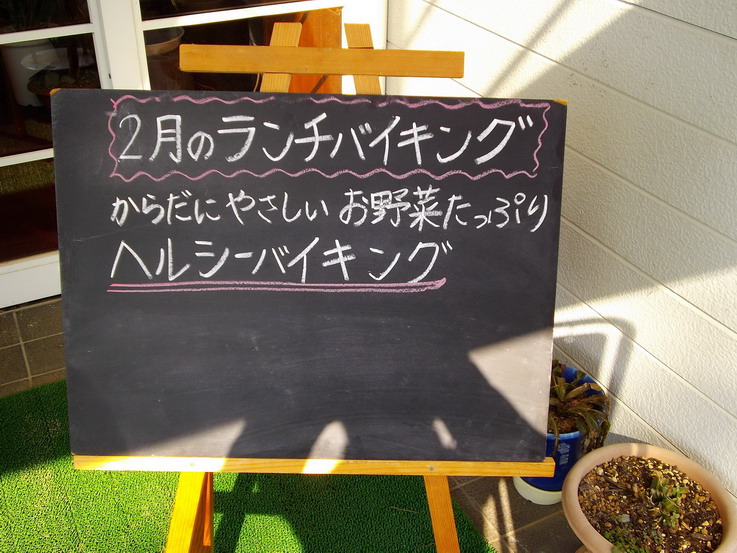 2月のランチバイキング
からだにやさしい お野菜たっぷり
ヘルシーバイキング